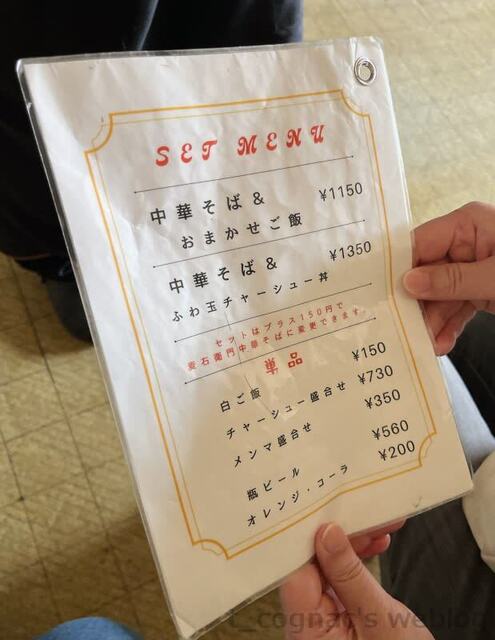 SET MENU
中華そば& ¥1150
おまかせご飯
中華そば& ¥1350
ふわ玉チャーシュー丼
セットはプラス150円で
麦右衛門中華そばに変更できます。
単品
白ご飯 ¥150
チャーシュー盛合せ ¥730
メンマ盛合せ ¥350
瓶ビール ¥560
オレンジ・コーラ ¥200
t_cognac's weblog